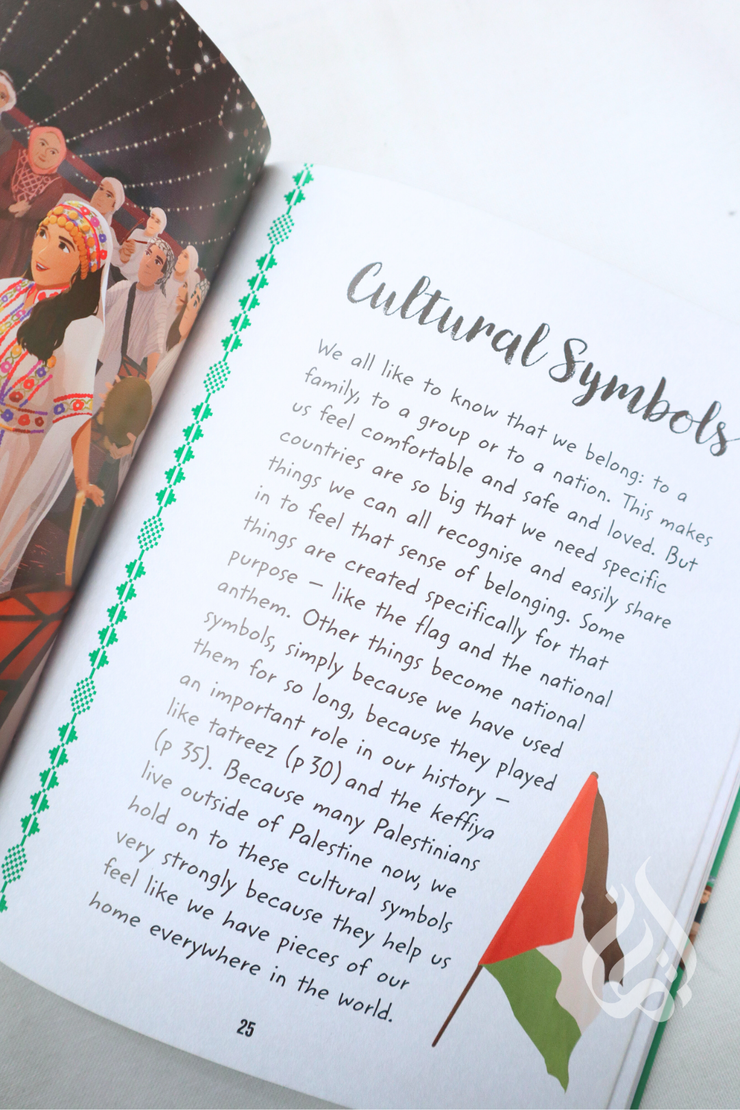 Cultural Symbols
We all like to know that we belong: to a
family, to a group or to a nation. This makes
us feel comfortable and safe and loved. But
countries are so big that we need specific
things we can all recognise and easily share
in to feel that sense of belonging. Some
things are created specifically for that
purpose – like the flag and the national
anthem. Other things become national
symbols, simply because we have used
them for so long, because they played
an important role in our history –
like tatreez (p 30) and the keffiya
(p 35). Because many Palestinians
live outside of Palestine now, we
hold on to these cultural symbols
very strongly because they help us
feel like we have pieces of our
home everywhere in the world.
25